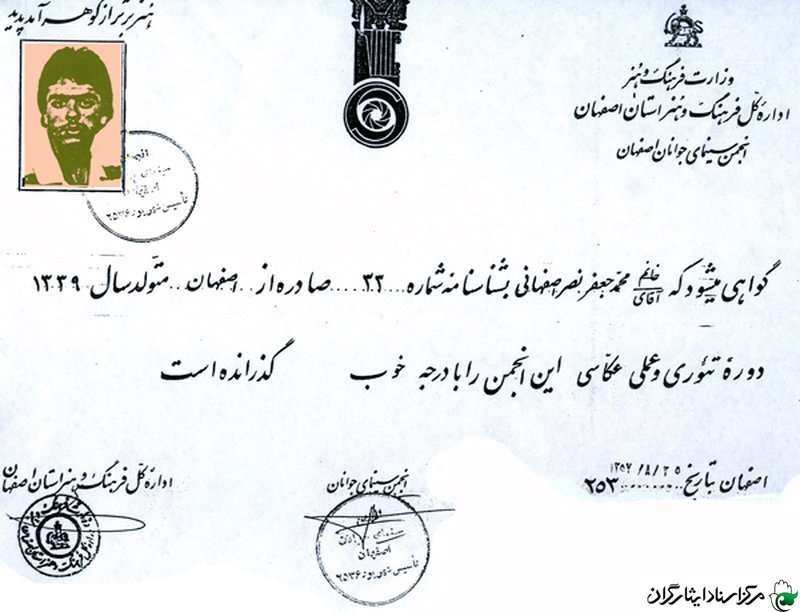 هنر برتر از گوهر آمد پدید
وزارت فرهنگ و هنر
اداره کل فرهنگ و هنر استان اصفهان
انجمن سینمای جوانان اصفهان
تأسیس شهریور ۲۵۳۶
گواهی میشود که خانم آقای محمد جعفر نصر اصفهانی بشناسنامه شماره ۳۳ صادره از اصفهان متولد سال ۱۳۳۹
دوره تئوری و عملی عکاسی این انجمن را با درجه خوب گذرانده است
اصفهان بتاریخ ۲۵۳
انجمن سینمای جوانان
اداره کل فرهنگ و هنر استان اصفهان
سینمای جوانان
اصفهان
تأسیس شهریور ۲۵۳۶
مرکز اسناد ایثارگران